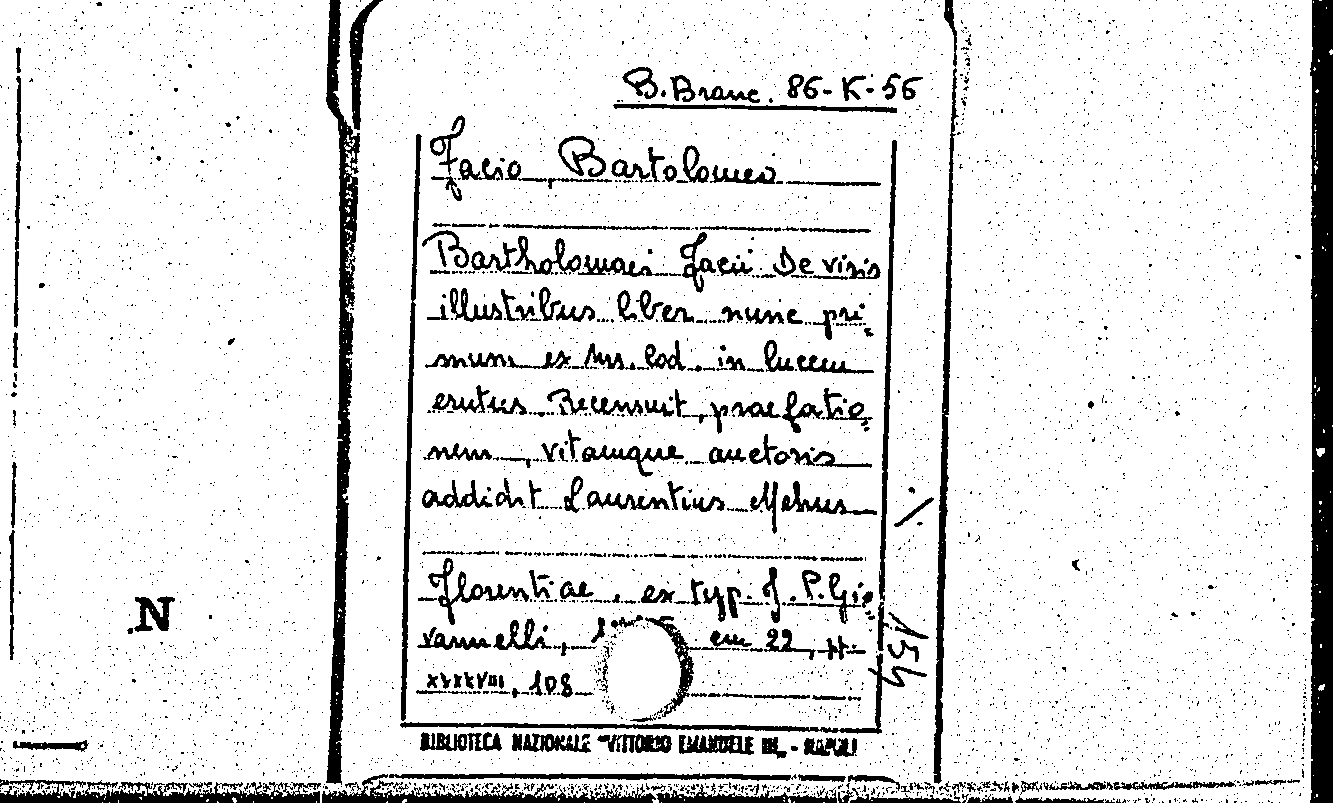 B. Branc. 86-K-56
Facio, Bartolomeo
Bartholomaei Facii De viris
illustribus liber nunc pri=
mum ex ms. cod. in lucem
erutus. Recensuit, praefatio=
nem, vitamque auctoris
addidit Laurentius Mehus
Florentiae, ex typ. J. P. Gio=
vannelli, cm 22, pp.
XXXXVIII, 108
154
N
BIBLIOTECA NAZIONALE "VITTORIO EMANUELE III" - NAPOLI